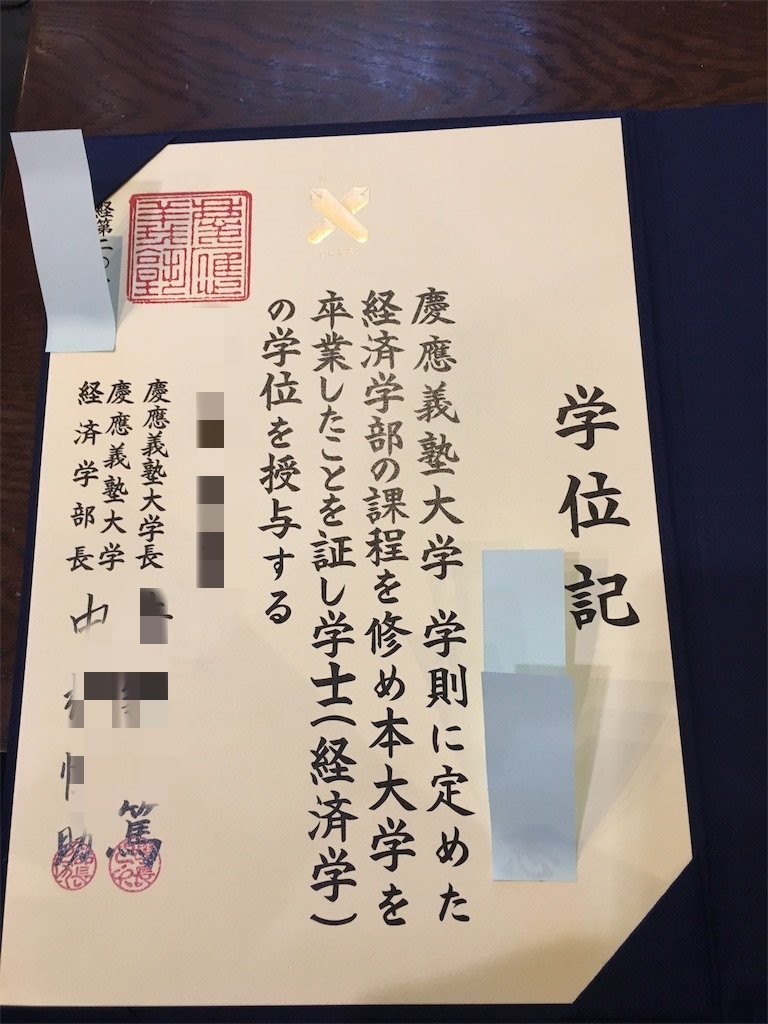 学位記
慶應義塾大学 学則に定めた
経済学部の課程を修め本大学を
卒業したことを証し学士(経済学)
の学位を授与する
慶應義塾大学長
篤
慶應義塾大学
経済学部長
中
助
経第二〇
慶應
義塾